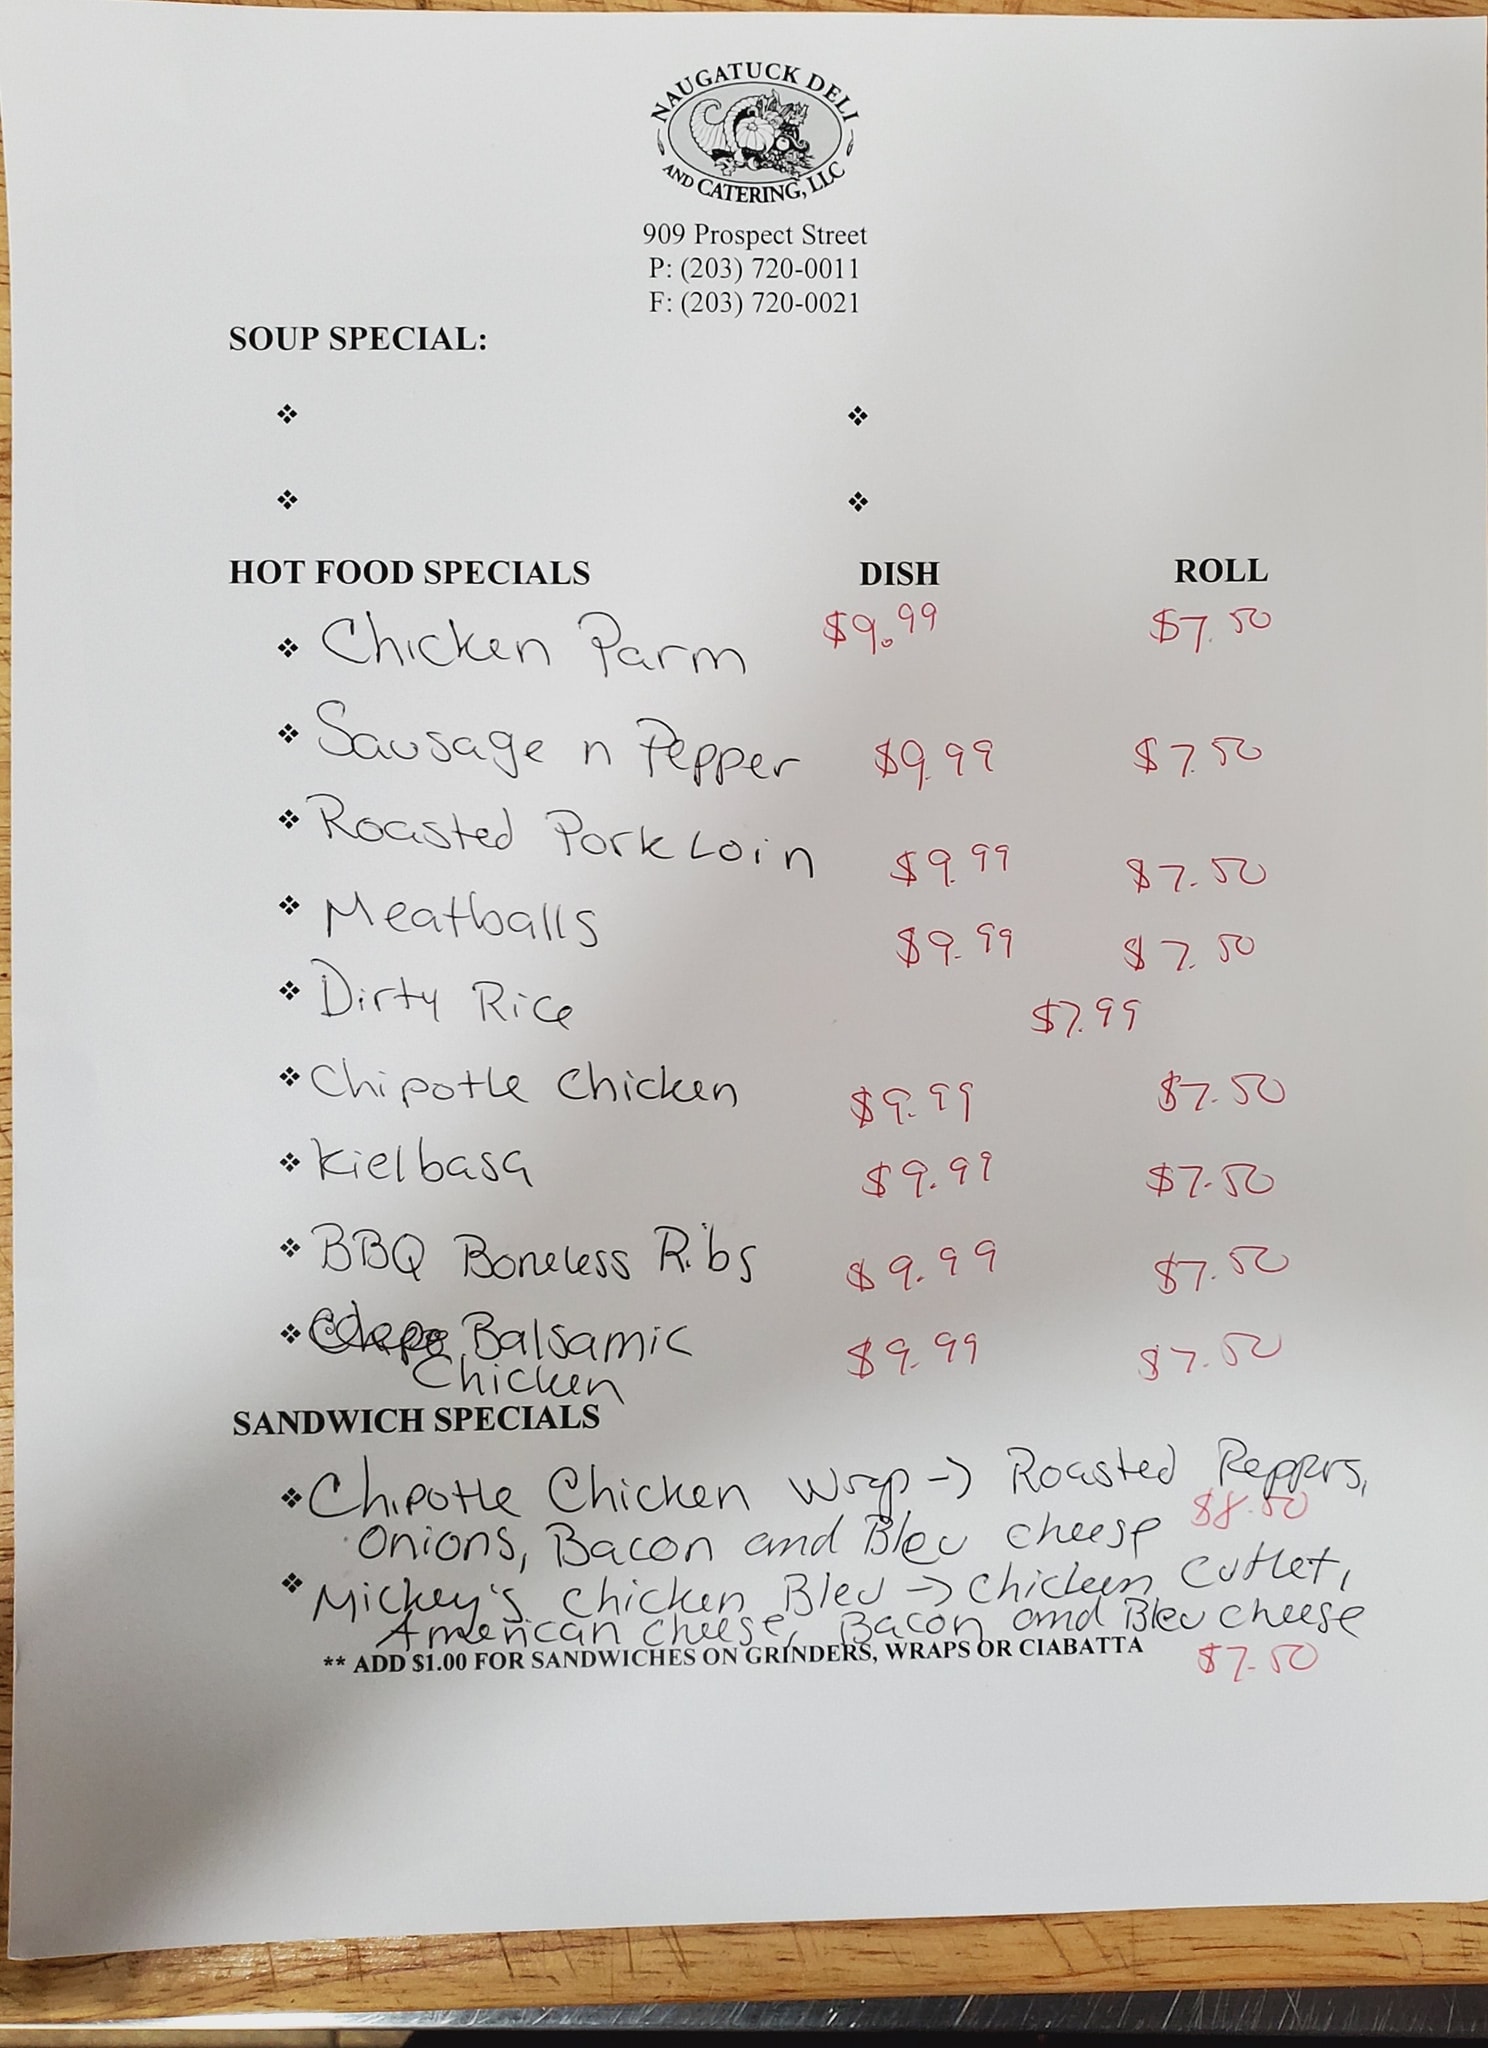 NAUGATUCK DELI
AND CATERING, LLC
909 Prospect Street
P: (203) 720-0011
F: (203) 720-0021
SOUP SPECIAL:
HOT FOOD SPECIALS DISH ROLL
Chicken Parm $9.99 $7.50
Sausage n Pepper $9.99 $7.50
Roasted Pork Loin $9.99 $7.50
Meatballs $9.99 $7.50
Dirty Rice $7.99
Chipotle Chicken $9.99 $7.50
Kielbasa $9.99 $7.50
BBQ Boneless Ribs $9.99 $7.50
Balsamic $9.99 $7.50
Chicken
SANDWICH SPECIALS
Chipotle Chicken Wrap → Roasted Peppers,
Onions, Bacon and Bleu cheese $8.50
Mickey's Chicken Bleu → Chicken Cutlet,
American cheese, Bacon and Bleu cheese
** ADD $1.00 FOR SANDWICHES ON GRINDERS, WRAPS OR CIABATTA $7.50